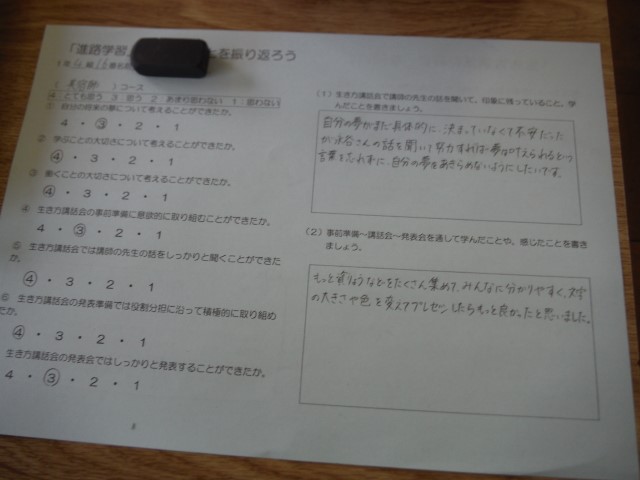 「進路学習
を振り返ろう
1年
）コース
4 とても思う 3 思う 2 あまり思わない 1 思わない
① 自分の将来の夢について考えることができたか。
4 ・ ③ ・ 2 ・ 1
② 学ぶことの大切さについて考えることができたか。
④ ・ 3 ・ 2 ・ 1
③ 働くことの大切さについて考えることができたか。
④ ・ 3 ・ 2 ・ 1
④ 生き方講話会の事前準備に意欲的に取り組むことができたか。
4 ・ ③ ・ 2 ・ 1
⑤ 生き方講話会では講師の先生の話をしっかりと聞くことができた
か。
④ ・ 3 ・ 2 ・ 1
⑥ 生き方講話会の発表準備では役割分担に沿って積極的に取り組め
たか。
④ ・ 3 ・ 2 ・ 1
生き方講話会の発表会ではしっかりと発表することができたか。
4 ・ ③ ・ 2 ・ 1
(1) 生き方講話会で講師の先生の話を聞いて、印象に残っていること、学
んだことを書きましょう。
自分の夢がまだ具体的に、決まっていなくて不安だった
が さんの話を聞いて努力すれば夢は叶えられるとう
言葉を忘れずに、自分の夢をあきらめないようにしたいです。
(2) 事前準備～講話会～発表会を通して学んだことや、感じたことを書き
ましょう。
もっと資りょうなどをたくさん集めて、みんなに分かりやすく、文字
の大きさや色を変えてプレゼンしたらもっと良かったと思いました。